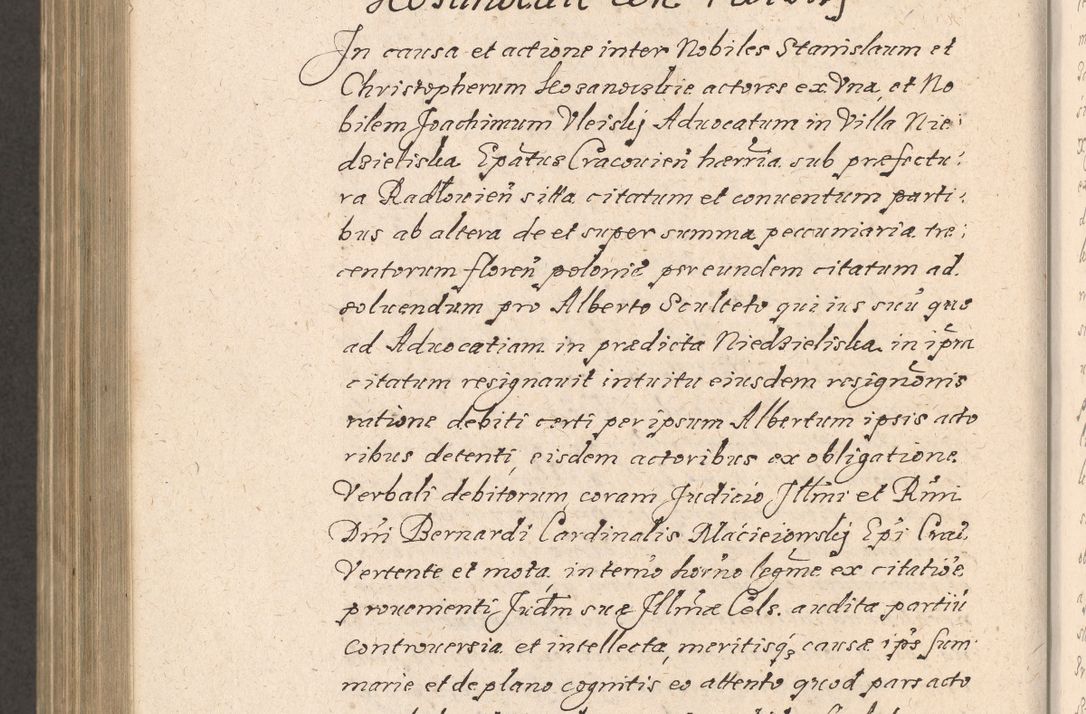 In causa et actione inter Nobiles Stanislaum et
Christopherum Kosanowskie actores ex Vna, et No
bilem Joachimum Vleiskj Aduocatum in Villa Nie:
dzieliska Epātus Cracouień hærria sub præfectu:
ra Radłouień silla citatum et conuentum parti:
bus ab altera de et super summa peccuniaria tre:
centorum floreń polonic̃ per eundem citatum ad
soluendum pro Alberto Sculteto qui ius suū quo
ad Aduocatiam in prædicta Niedzieliska in ip̃m
citatum resignauit intuitu eiusdem resignōnis
ratione debiti certi per ipsum Albertum ipsis acto
ribus detenti, eisdem actoribus ex obligatione
Verbali debitorum, coram Judicio Jllmi et Rmi
Dni Bernardi Cardinalis Macieiowskj Epi Crac̃
Vertente et mota, in terno horno legm̃e ex citatiōe
prouenienti, Judm suæ Jllmæ Cels. audita partiū
controuersia et intellecta, meritisq́ causæ ip̃s sum
marie et de plano cognitis eo attento quod pars acto